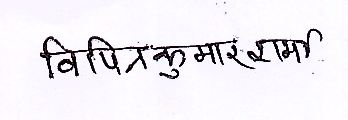 विपिनकुमार शर्मा